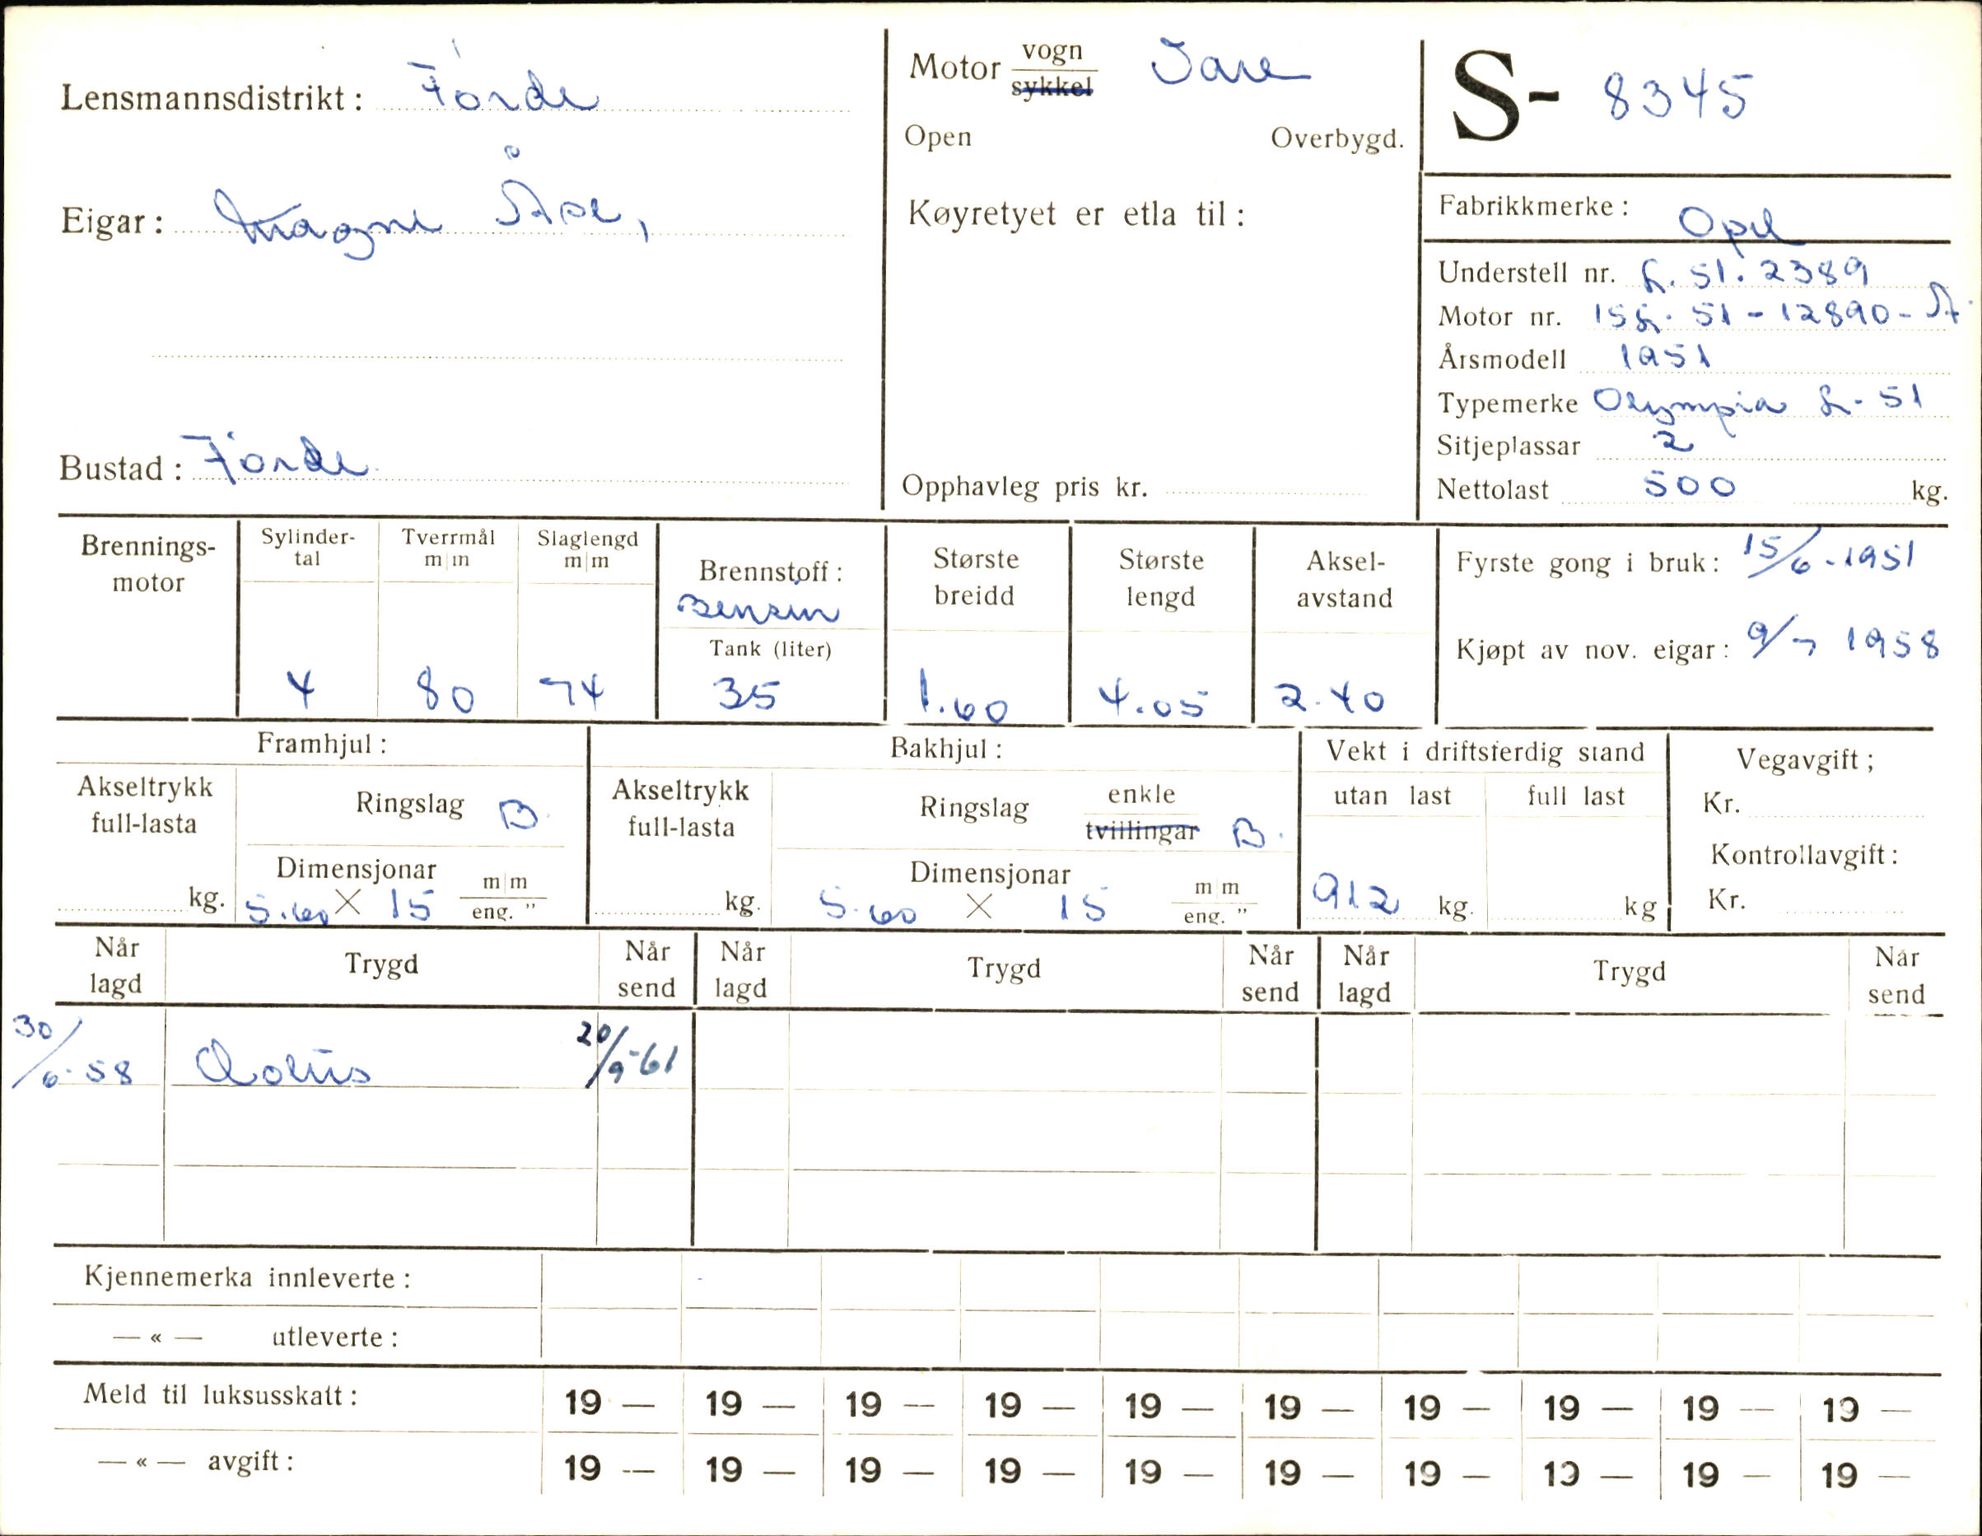 Lensmannsdistrikt: Förde
Motor vogn / sykkel Vare
S- 8345
Open Overbygd.
Eigar: Magne Åse,
Køyretyet er etla til:
Fabrikkmerke: Opel
Understell nr. L. 51. 2389
Motor nr. 15L. 51 - 12890 - A.
Årsmodell 1951
Typemerke Olympia L-51
Sitjeplassar 2
Bustad: Förde.
Opphavleg pris kr.
Nettolast 500 kg.
Brennings-motor
Sylinder-tal
Tverrmål m/m
Slaglengd m/m
Brennstoff: Bensin
Tank (liter)
Største breidd
Største lengd
Aksel-avstand
Fyrste gong i bruk: 15/6-1951
Kjøpt av nov. eigar: 9/7 1958
4 80 74 35 1.60 4.05 2.40
Framhjul: Bakhjul: Vekt i driftsferdig stand Vegavgift;
Akseltrykk full-lasta kg.
Ringslag B.
Dimensjonar 5.60 X 15 m/m eng. "
Akseltrykk full-lasta kg.
Ringslag enkle / tvillingar B.
Dimensjonar 5.60 X 15 m/m eng. "
utan last 912 kg.
full last kg
Kr.
Kontrollavgift:
Kr.
Når lagd Trygd Når send Når lagd Trygd Når send Når lagd Trygd Når send
30/6-58 20/9-61
Kjennemerka innleverte:
— « — utleverte:
Meld til luksusskatt: 19 — 19 — 19 — 19 — 19 — 19 — 19 — 19 — 19 — 19 —
— « — avgift: 19 — 19 — 19 — 19 — 19 — 19 — 19 — 19 — 19 — 19 —